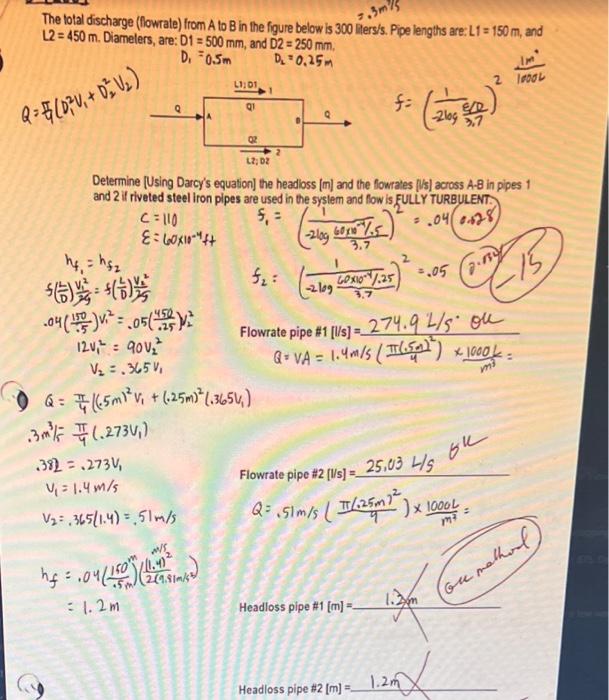 = .3 m³/s
The total discharge (flowrate) from A to B in the figure below is 300 liters/s. Pipe lengths are: L1 = 150 m, and
L2 = 450 m. Diameters, are: D1 = 500 mm, and D2 = 250 mm.
D₁ = 0.5m D₂ = 0.25m
1m³/1000L
Q = π/4 (D₁²V₁ + D₂²V₂)
L1; D1
1
Q
Q1
A
B
Q
Q2
2
L2; D2
f = (1/(-2log (ε/D)/3.7))²
Determine [Using Darcy's equation] the headloss [m] and the flowrates [l/s] across A-B in pipes 1
and 2 if riveted steel iron pipes are used in the system and flow is FULLY TURBULENT.
C = 110
ε = 60x10⁻⁴ ft
f₁ = (1/(-2log (60x10⁻⁴/.5)/3.7))² = .04 0.028
hf₁ = hf₂
f₂ = (1/(-2log (60x10⁻⁴/.25)/3.7))² = .05
-15
f(L/D) V₁²/2g = f(L/D) V₂²/2g
.04(150/.5)V₁² = .05(450/.25)V₂²
12V₁² = 90V₂²
V₂ = .365V₁
Flowrate pipe #1 [l/s] = 274.9 L/s ok
Q = VA = 1.4m/s (π(.5m)²/4) x 1000L/m³ =
Q = π/4 ((.5m)²V₁ + (.25m)²(.365V₁)
.3m³/s = π/4 (.273V₁)
.382 = .273V₁
V₁ = 1.4 m/s
V₂ = .365(1.4) = .51m/s
Flowrate pipe #2 [l/s] = 25.03 L/s ok
Q = .51m/s (π(.25m)²/4) x 1000L/m³ =
hf = .04(150m/.5m)((1.4)² m/s/2(9.81m/s²))
= 1.2m
ok method
Headloss pipe #1 [m] = 1.2m
Headloss pipe #2 [m] = 1.2m